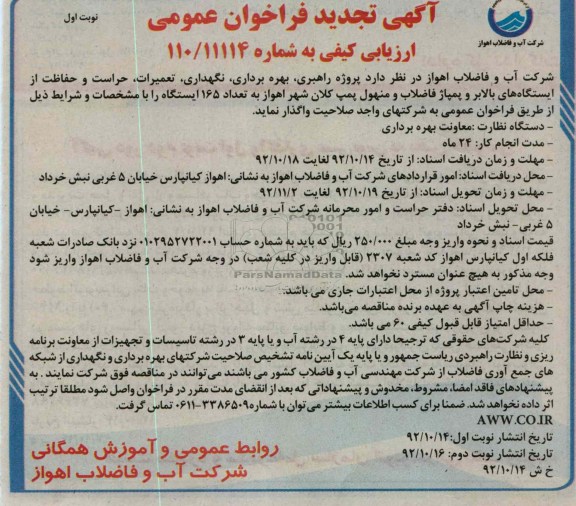 آگهی تجدید فراخوان عمومی
نوبت اول
ارزیابی کیفی به شماره ۱۱۰/۱۱۱۱۴
شرکت آب و فاضلاب اهواز
شرکت آب و فاضلاب اهواز در نظر دارد پروژه راهبری، بهره برداری، نگهداری، تعمیرات، حراست و حفاظت از
ایستگاه‌های بالابر و پمپاژ فاضلاب و منهول پمپ کلان شهر اهواز به تعداد ۱۶۵ ایستگاه را با مشخصات و شرایط ذیل
از طریق فراخوان عمومی به شرکتهای واجد صلاحیت واگذار نماید.
- دستگاه نظارت :معاونت بهره برداری
- مدت انجام کار: ۲۴ ماه
- مهلت و زمان دریافت اسناد: از تاریخ ۹۲/۱۰/۱۴ لغایت ۹۲/۱۰/۱۸
-محل دریافت اسناد:امور قراردادهای شرکت آب و فاضلاب اهواز به نشانی: اهواز کیانپارس خیابان ۵ غربی نبش خرداد
- مهلت و زمان تحویل اسناد: از تاریخ ۹۲/۱۰/۱۹ لغایت ۹۲/۱۱/۲
- محل تحویل اسناد: دفتر حراست و امور محرمانه شرکت آب و فاضلاب اهواز به نشانی: اهواز -کیانپارس- خیابان
۵ غربی- نبش خرداد
قیمت اسناد و نحوه واریز وجه مبلغ ۲۵۰/۰۰۰ ریال که باید به شماره حساب ۰۱۰۲۹۵۲۷۲۲۰۰۱ نزد بانک صادرات شعبه
فلکه اول کیانپارس اهواز کد شعبه ۲۳۰۷ (قابل واریز در کلیه شعب) در وجه شرکت آب و فاضلاب اهواز واریز شود
وجه مذکور به هیچ عنوان مسترد نخواهد شد.
- محل تامین اعتبار پروژه از محل اعتبارات جاری می باشد.
- هزینه چاپ آگهی به عهده برنده مناقصه می‌باشد.
- حداقل امتیاز قابل قبول کیفی ۶۰ می باشد.
کلیه شرکت‌های حقوقی که ترجیحا دارای پایه ۴ در رشته آب و یا پایه ۳ در رشته تاسیسات و تجهیزات از معاونت برنامه
ریزی و نظارت راهبردی ریاست جمهور و یا پایه یک آیین نامه تشخیص صلاحیت شرکتهای بهره برداری و نگهداری از شبکه
های جمع آوری فاضلاب از شرکت مهندسی آب و فاضلاب کشور می باشند می‌توانند در مناقصه فوق شرکت نمایند . به
پیشنهادهای فاقد امضا، مشروط، مخدوش و پیشنهاداتی که بعد از انقضای مدت مقرر در فراخوان واصل شود مطلقا ترتیب
اثر داده نخواهد شد. ضمنا برای کسب اطلاعات بیشتر می‌توان با شماره۳۳۸۶۵۰۹-۰۶۱۱ تماس گرفت.
AWW.CO.IR
تاریخ انتشار نوبت اول:۹۲/۱۰/۱۴
تاریخ انتشار نوبت دوم: ۹۲/۱۰/۱۶
خ ش ۹۲/۱۰/۱۴
روابط عمومی و آموزش همگانی
شرکت آب و فاضلاب اهواز
ParsNamadData